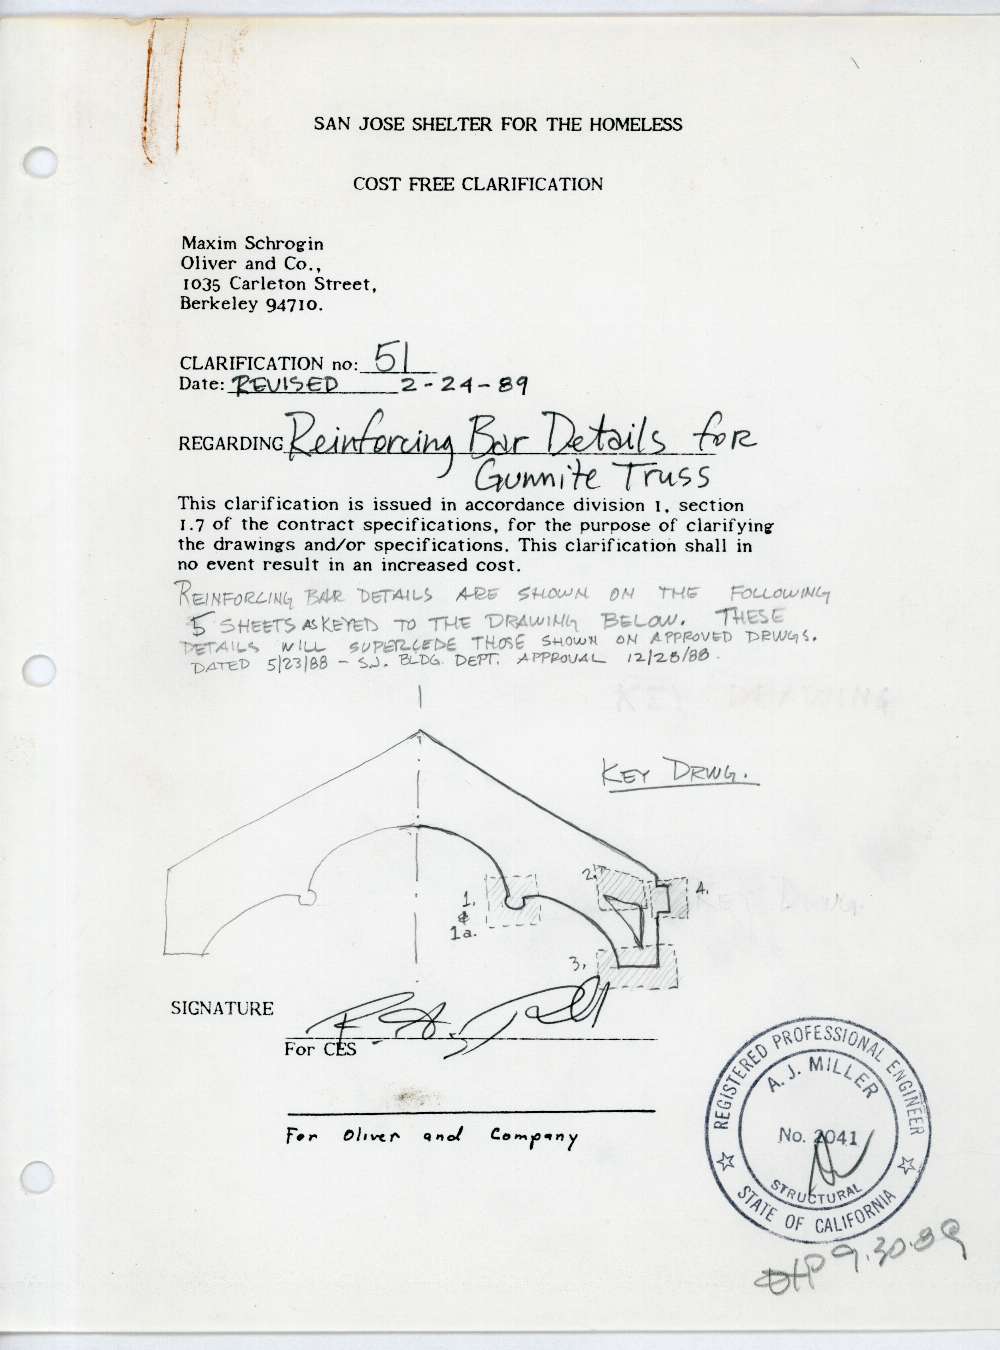 SAN JOSE SHELTER FOR THE HOMELESS
COST FREE CLARIFICATION
Maxim Schrogin
Oliver and Co.,
1035 Carleton Street,
Berkeley 94710.
CLARIFICATION no: 51
Date: REVISED 2-24-89
REGARDING Reinforcing Bar Details for
Gunnite Truss
This clarification is issued in accordance division 1, section
1.7 of the contract specifications, for the purpose of clarifying
the drawings and/or specifications. This clarification shall in
no event result in an increased cost.
REINFORCING BAR DETAILS ARE SHOWN ON THE FOLLOWING
5 SHEETS AS KEYED TO THE DRAWING BELOW. THESE
DETAILS WILL SUPERCEDE THOSE SHOWN ON APPROVED DRWGS.
DATED 5/23/88 - S.J. BLDG. DEPT. APPROVAL 12/28/88.
KEY DRAWING
KEY DRWG.
1.
&
1a.
2.
4.
KEY DRWG.
3.
SIGNATURE
For CES
For Oliver and Company
REGISTERED PROFESSIONAL ENGINEER
A. J. MILLER
No. 2041
STRUCTURAL
STATE OF CALIFORNIA
9.30.89